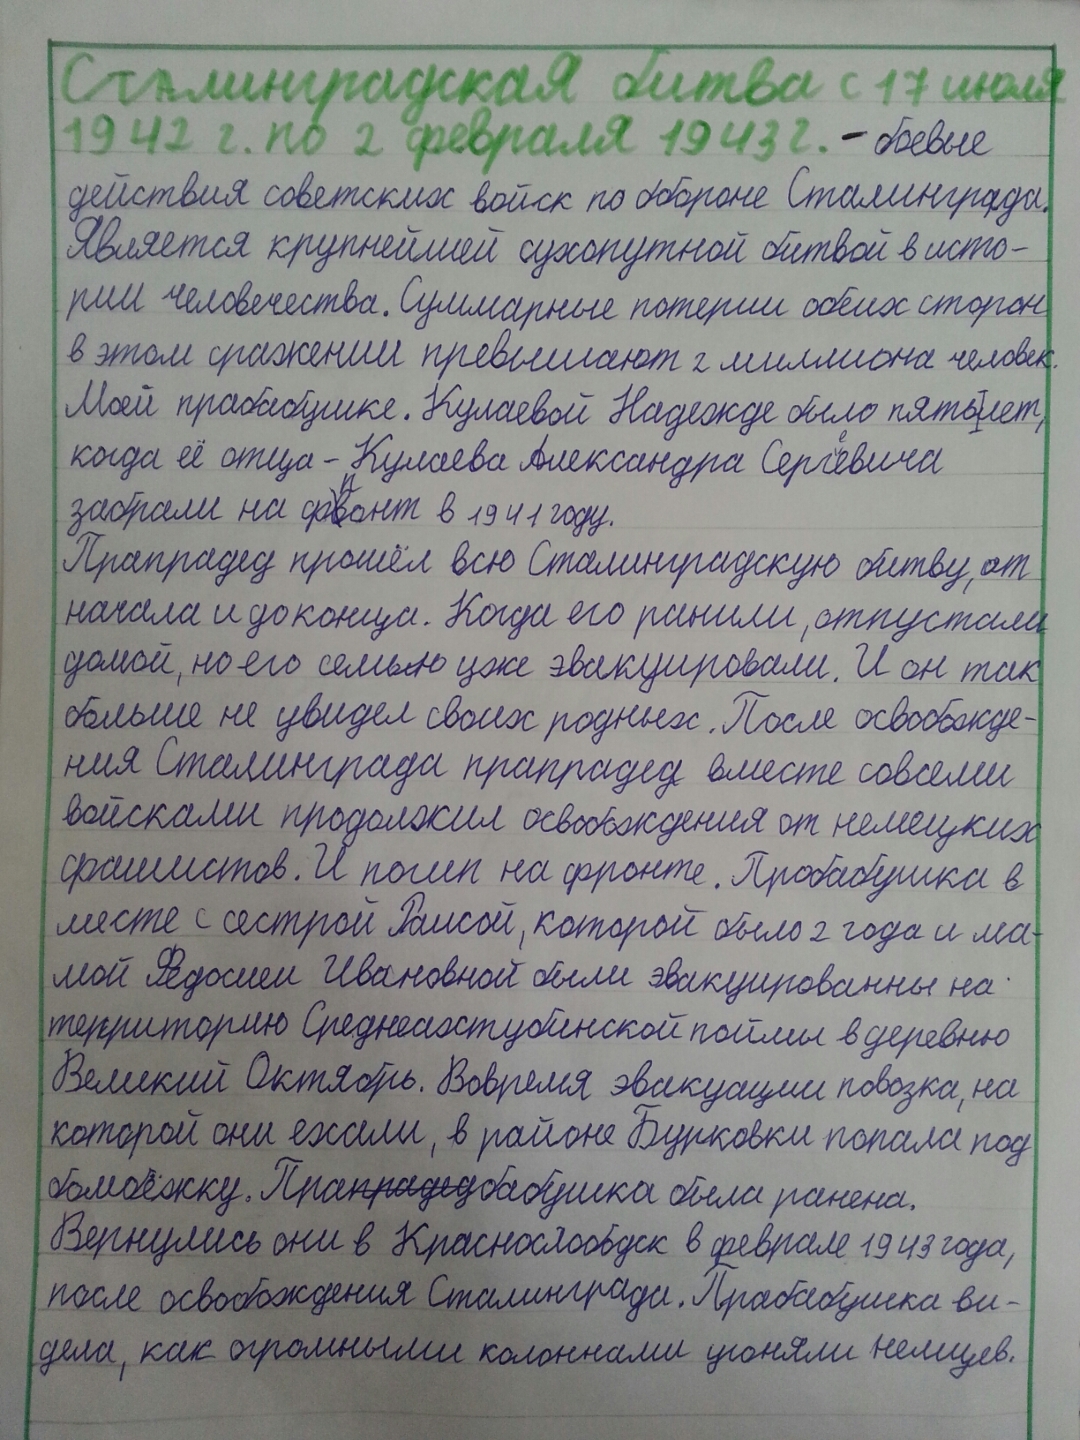 Сталинградская битва с 17 июля
1942 г. по 2 февраля 1943 г. - боевые
действия советских войск по обороне Сталинграда.
Является крупнейшей сухопутной битвой в исто-
рии человечества. Суммарные потерии обеих сторон
в этом сражении превышают 2 миллиона человек.
Моей прабабушке. Кулаевой Надежде было пять лет,
когда её отца - Кулаева Александра Сергеевича
забрали на фронт в 1941 году.
Прапрадед прошёл всю Сталинградскую битву, от
начала и до конца. Когда его ранили, отпустали
домой, но его семью уже эвакуировали. И он так
больше не увидел своих родных. После освобожде-
ния Сталинграда прапрадед вместе совсеми
войсками продолжил освобождения от немецких
фашистов. И погип на фронте. Пробабушка в
месте с сестрой Раисой, которой было 2 года и ма-
мой Федосиеи Ивановной были эвакуированны на
территорию Среднеахстубинской поймы в деревню
Великий Октябрь. Вовремя эвакуации повозка, на
которой они ехали, в районе Бурковки попала под
бомбёжку. Прапрадедбабушка была ранена.
Вернулись они в Краснослободск в феврале 1943 года,
после освобождения Сталинграда. Прабабушка ви-
дела, как огромными колоннами угоняли немцев.